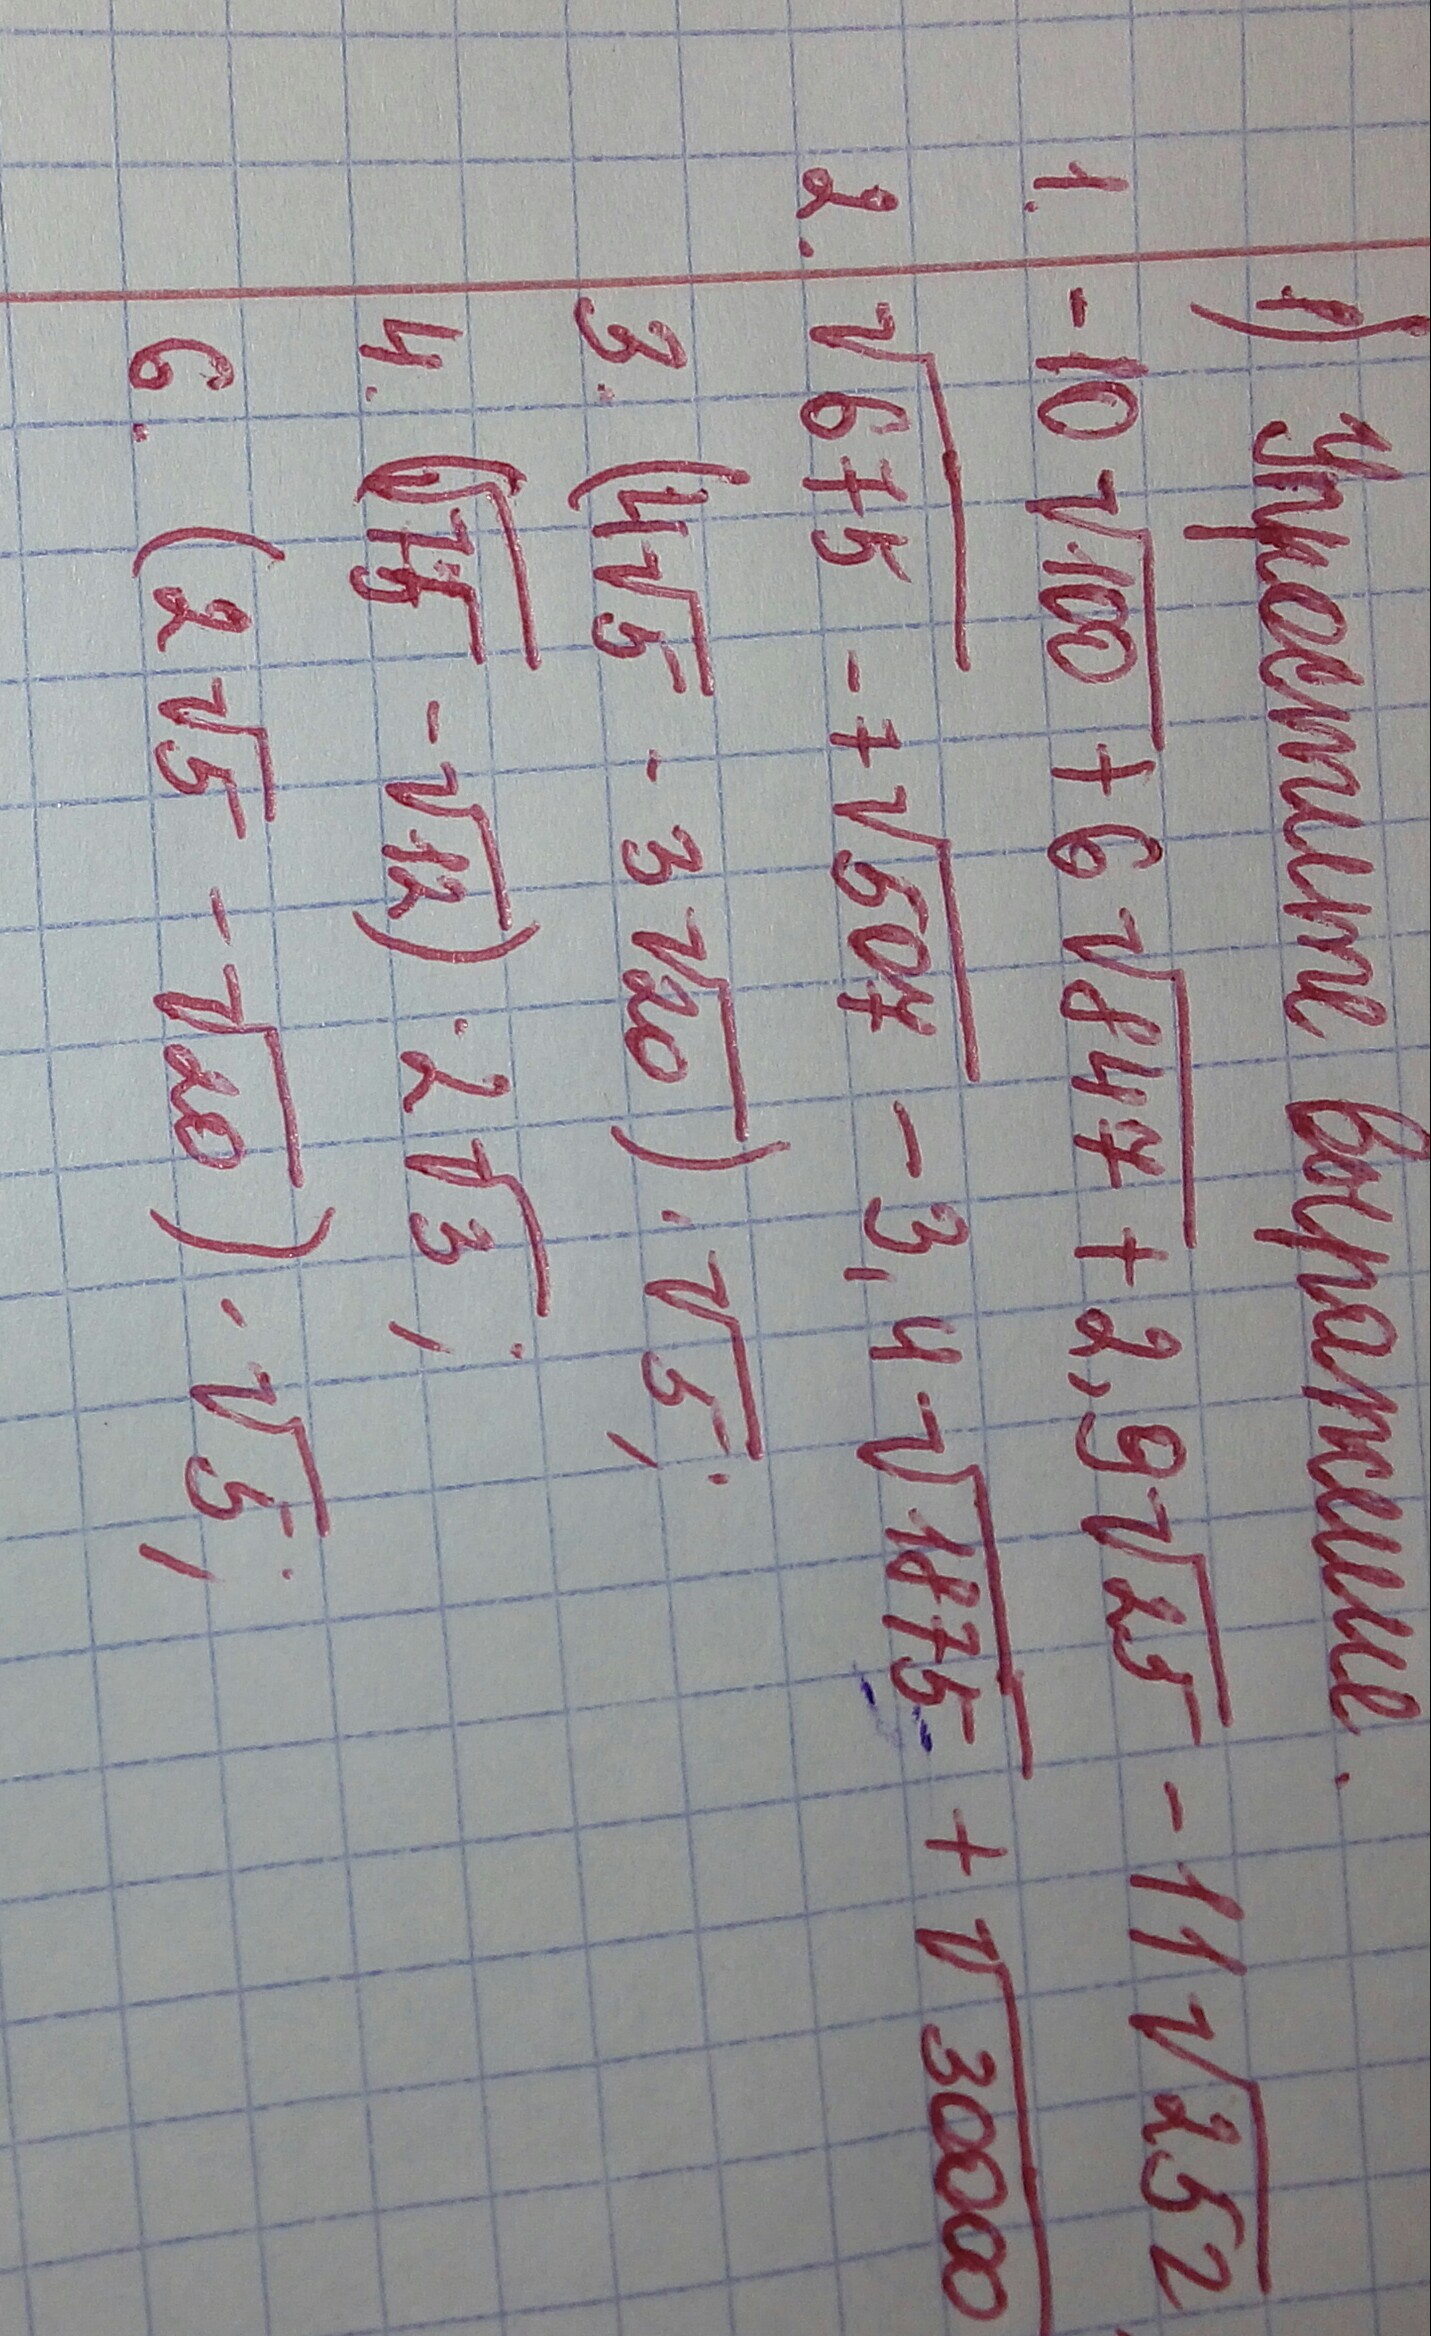 1) Упростите выражение.
1. -10√100 + 6√847 + 2,9√25 - 11√252
2. √675 - 7√507 - 3,4√1875 + √30000
3. (4√5 - 3√20) · √5;
4. (√75 - √12) · 2√3;
6. (2√5 - √20) · √5;